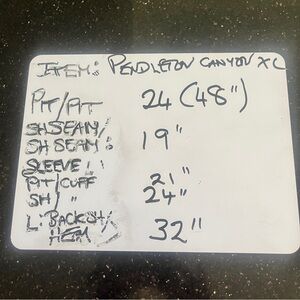 ITEM: PENDLETON CANYON XL
PIT/PIT 24 (48")
SHSEAM/
SHSEAM: 19"
SLEEVE:
PIT/CUFF 21"
SH/ " 24"
L: BACK SH/
HEM 32"